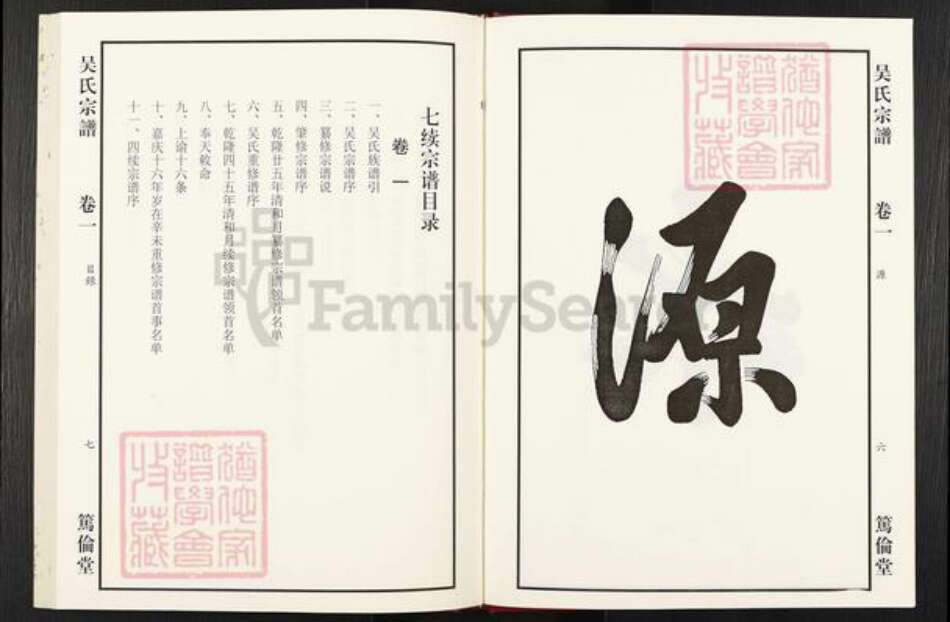 吴氏宗譜
卷一
源
六
篤倫堂
源
七续宗谱目录
卷一
一、吴氏族谱引
二、吴氏宗谱序
三、纂修宗谱说
四、肇修宗谱序
五、乾隆廿五年清和月纂修宗谱领首名单
六、吴氏重修谱序
七、乾隆四十五年清和月续修宗谱领首名单
八、奉天敕命
九、上谕十六条
十、嘉庆十六年岁在辛未重修宗谱首事名单
十一、四续宗谱序
吴氏宗譜
卷一
目録
七
篤倫堂
FamilySearch
猶他家
譜學會
收藏
猶他家
譜學會
收藏